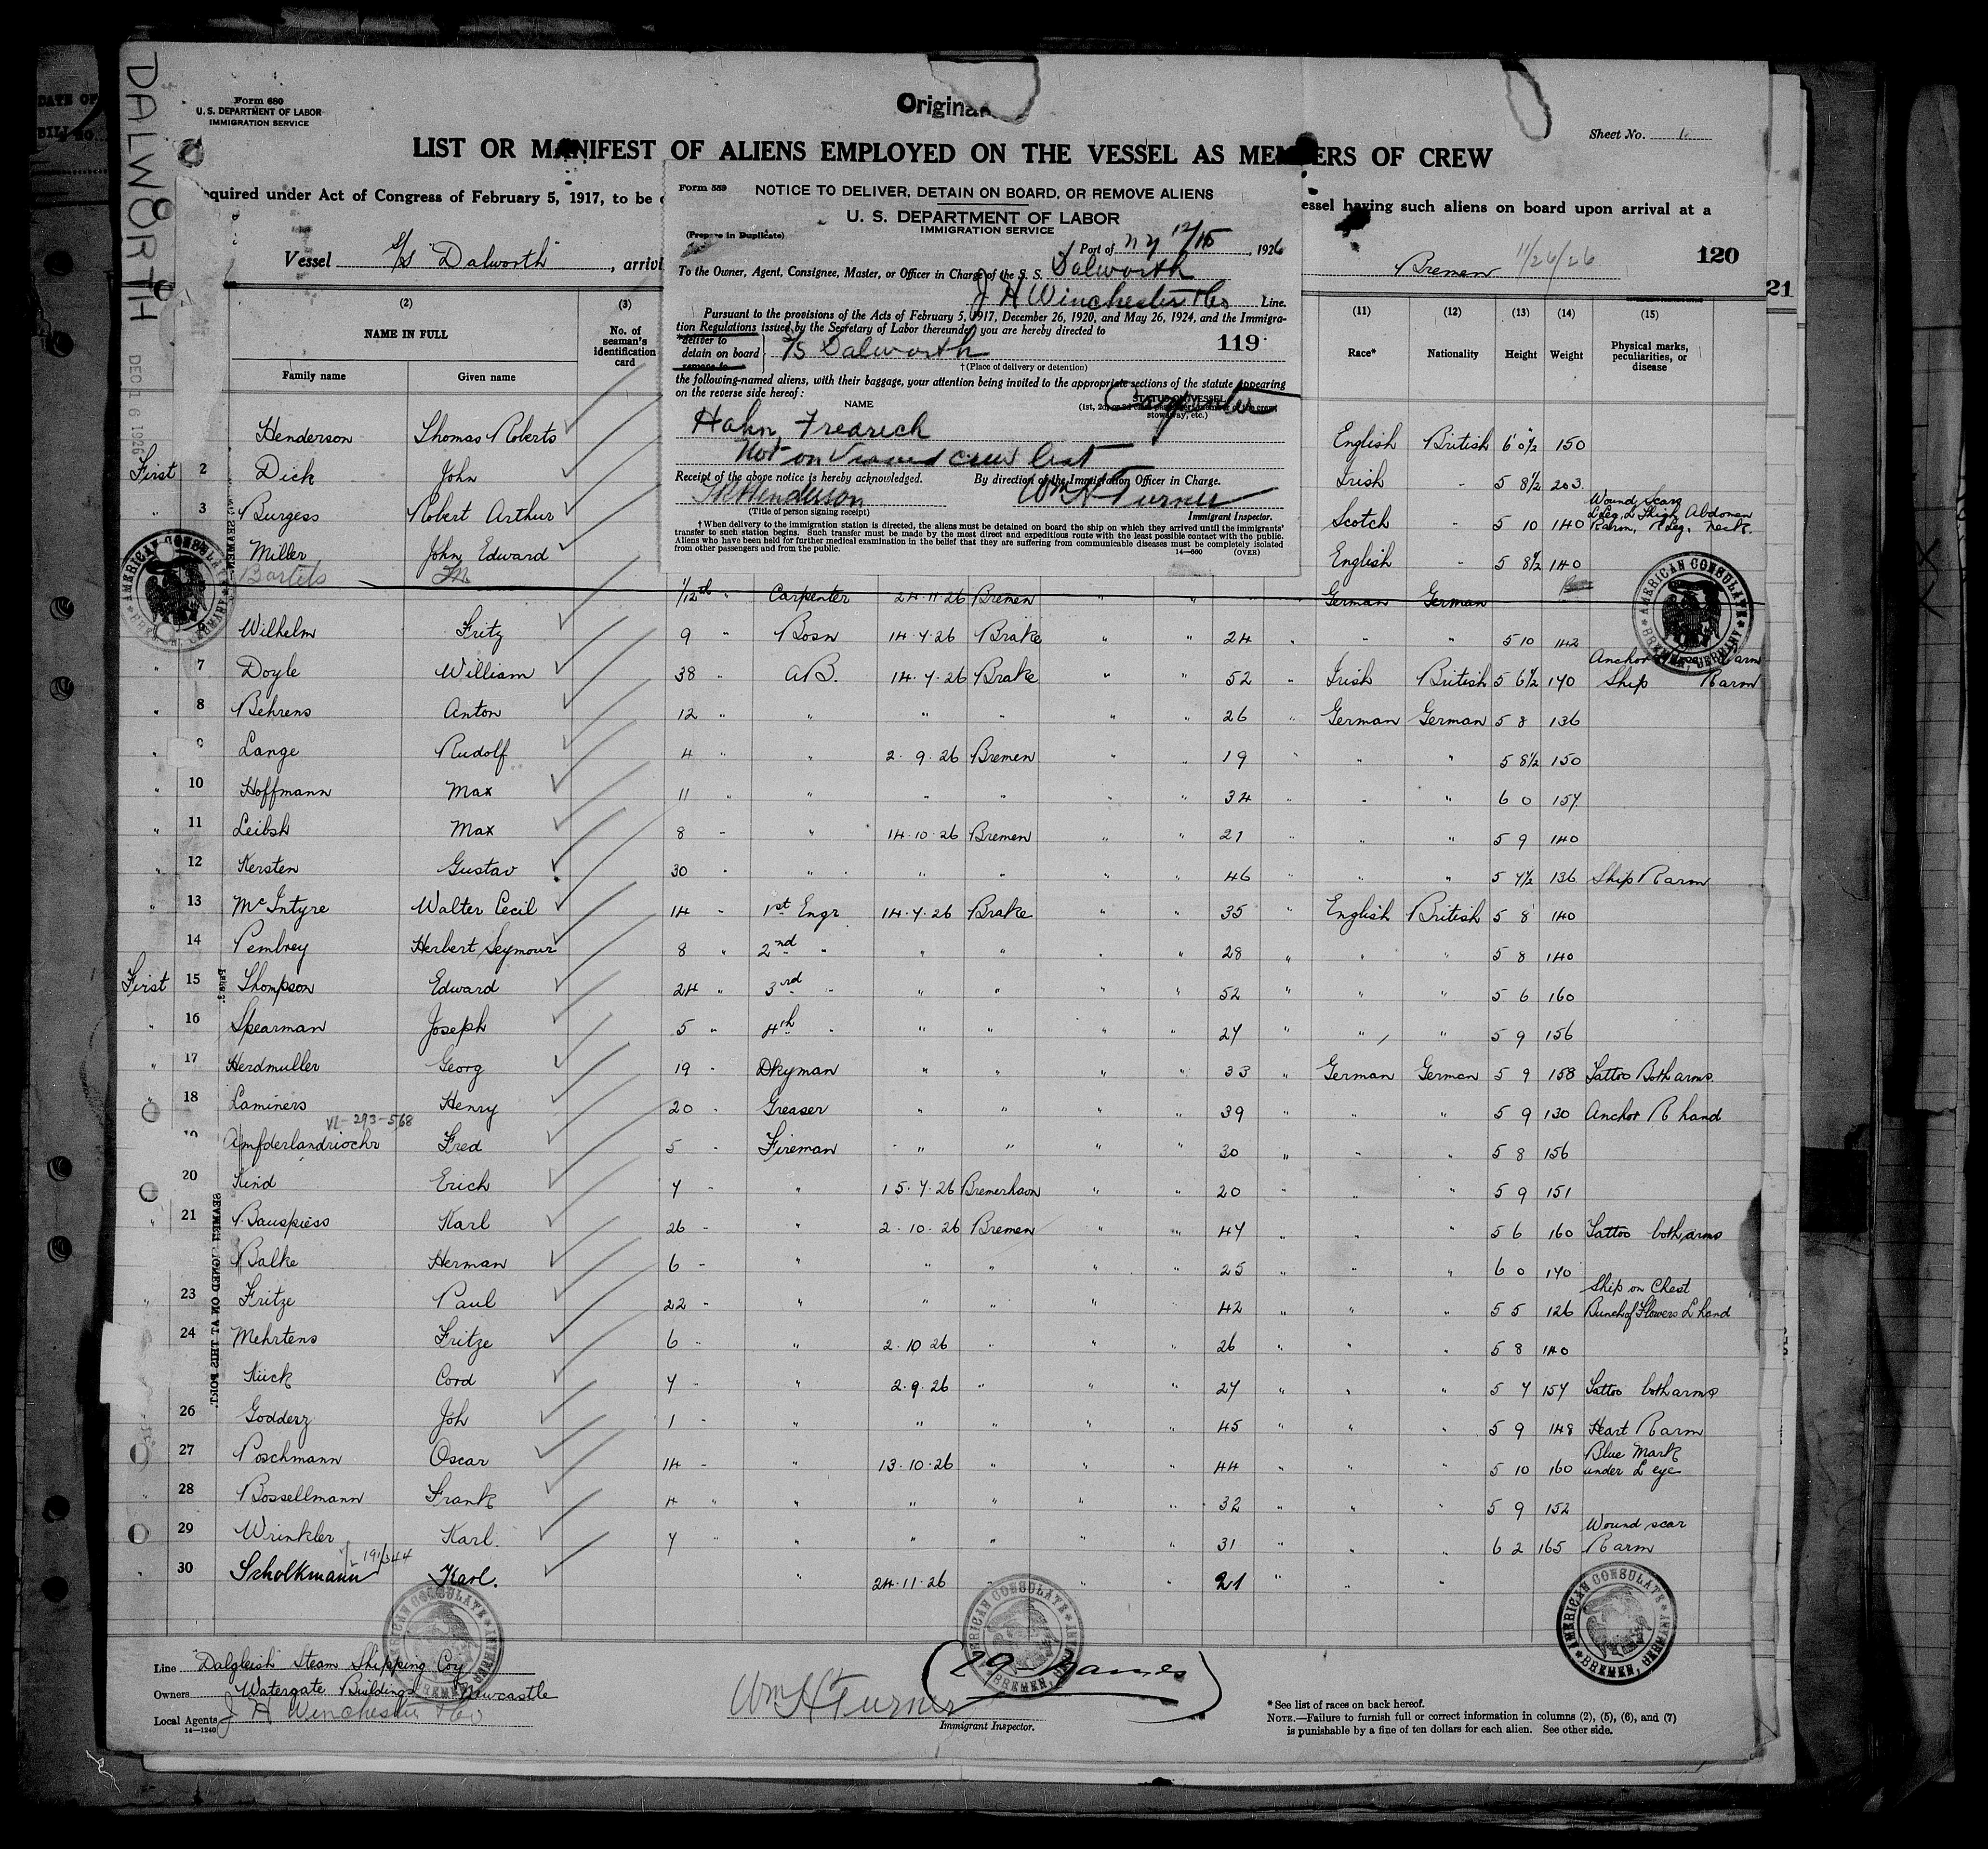 DALWORTH
DEC 16 1926
Form 680
U. S. DEPARTMENT OF LABOR
IMMIGRATION SERVICE
Original
Sheet No. 1
LIST OR MANIFEST OF ALIENS EMPLOYED ON THE VESSEL AS MEMBERS OF CREW
equired under Act of Congress of February 5, 1917, to be
essel having such aliens on board upon arrival at a
Vessel S/S "Dalworth", arrivi
Bremen 11/26/26
120
21
Form 559
NOTICE TO DELIVER, DETAIN ON BOARD, OR REMOVE ALIENS
U. S. DEPARTMENT OF LABOR
IMMIGRATION SERVICE
(Prepare in Duplicate)
Port of NY 12/15, 1926
To the Owner, Agent, Consignee, Master, or Officer in Charge of the S. S. Dalworth
J H Winchester & Co Line.
Pursuant to the provisions of the Acts of February 5, 1917, December 26, 1920, and May 26, 1924, and the Immigra-
tion Regulations issued by the Secretary of Labor thereunder, you are hereby directed to
*deliver to
detain on board S/S Dalworth 119
remove to
†(Place of delivery or detention)
the following-named aliens, with their baggage, your attention being invited to the appropriate sections of the statute appearing
on the reverse side hereof:
NAME
STATUS ON VESSEL
Carpenter
Hahn, Fredrich
Not on Visaed crew list
Receipt of the above notice is hereby acknowledged. By direction of the Immigration Officer in Charge.
TR Henderson Wm H Turner
(Title of person signing receipt) Immigrant Inspector.
†When delivery to the immigration station is directed, the aliens must be detained on board the ship on which they arrived until the immigrants'
transfer to such station begins. Such transfer must be made by the most direct and expeditious route with the least possible contact with the public.
Aliens who have been held for further medical examination in the belief that they are suffering from communicable diseases must be completely isolated
from other passengers and from the public.
14—660 (OVER)
(2) (3) (11) (12) (13) (14) (15)
NAME IN FULL
Family name Given name
No. of seaman's identification card
Race* Nationality Height Weight Physical marks, peculiarities, or disease
Henderson Thomas Roberts English British 6 0½ 150
First 2 Dick John Irish " 5 8½ 203
" 3 Burgess Robert Arthur Scotch " 5 10 140 Wound Scars L Leg. L Thigh Abdomen R arm, R Leg. Neck.
Miller John Edward English " 5 8½ 140
Bartels M 1/12 " Carpenter 24 11 26 Bremen " " " German German
Wilhelm Fritz 9 " Bosn 14.7.26 Brake " " 24 " " " 5 10 142
" 7 Doyle William 38 " AB. 14.7.26 Brake " " 52 " Irish British 5 6½ 170 Anchor arm Ship R arm
" 8 Behrens Anton 12 " " " " " " 26 " German German 5 8 136
" 9 Lange Rudolf 4 " 2.9.26 Bremen " " 19 " " " 5 8½ 150
" 10 Hoffmann Max 11 " " " " " " 34 " " " 6 0 157
" 11 Leibsh Max 8 " " 14.10.26 Bremen " " 21 " " " 5 9 140
" 12 Kersten Gustav 30 " " " " " " 46 " " " 5 7½ 136 Ship R arm
" 13 McIntyre Walter Cecil 14 " 1st Engr 14.7.26 Brake " " 35 " English British 5 8 140
14 Pembrey Herbert Seymour 8 " 2nd " " " " " 28 " " " 5 8 140
First 15 Thompson Edward 24 " 3rd " " " " " 52 " " " 5 6 160
" 16 Spearman Joseph 5 " 4th " " " " " 27 " " " 5 9 156
" 17 Herdmuller Georg 19 " Dkyman " " " " 33 " German German 5 9 158 Tattoo Both arms.
" 18 Laminers Henry 20 " Greaser " " " " 39 " " " 5 9 130 Anchor R hand
VL-293-568
19 Amfderlandriochr Fred 5 " Fireman " " " " 30 " " " 5 8 156
20 Kind Erich 7 " " 15.7.26 Bremerhavn " " 20 " " " 5 9 151
" 21 Bauspiess Karl 26 " " 2.10.26 Bremen " " 47 " " " 5 6 160 Tattoo both arms
Balke Herman 6 " " " " " " 25 " " " 6 0 170
" 23 Fritze Paul 22 " " " " " " 42 " " " 5 5 126 Ship on Chest Bunch of Flowers L hand
24 Mehrtens Fritze 6 " " 2.10 26 " " " 26 " " " 5 8 140
Kück Cord 7 " " 2.9.26 " " " 27 " " " 5 7 157 Tattoo both arms
26 Godderz Joh 1 " " " " " " 45 " " " 5 9 148 Heart R arm
27 Poschmann Oscar 14 " " 13.10.26 " " " 44 " " " 5 10 160 Blue Mark under L eye
" 28 Bossellmann Frank 4 " " " " " " 32 " " " 5 9 152
29 Wrinkler Karl. 7 " " " " " " 31 " " " 6 2 165 Wound scar R arm
191344
" 30 Scholkmann Karl. " 24.11.26 " " " 21 " " "
SEAMEN SIGNED ON AT THIS PORT.
AMERICAN CONSULATE
BREMEN, GERMANY
Line Dalgleish Steam Shipping Coy
Owners Watergate Buildings Newcastle
Local Agents J H Winchester & Co
14—1240
Wm H Turner
Immigrant Inspector.
(29 names)
*See list of races on back hereof.
NOTE.—Failure to furnish full or correct information in columns (2), (5), (6), and (7)
is punishable by a fine of ten dollars for each alien. See other side.